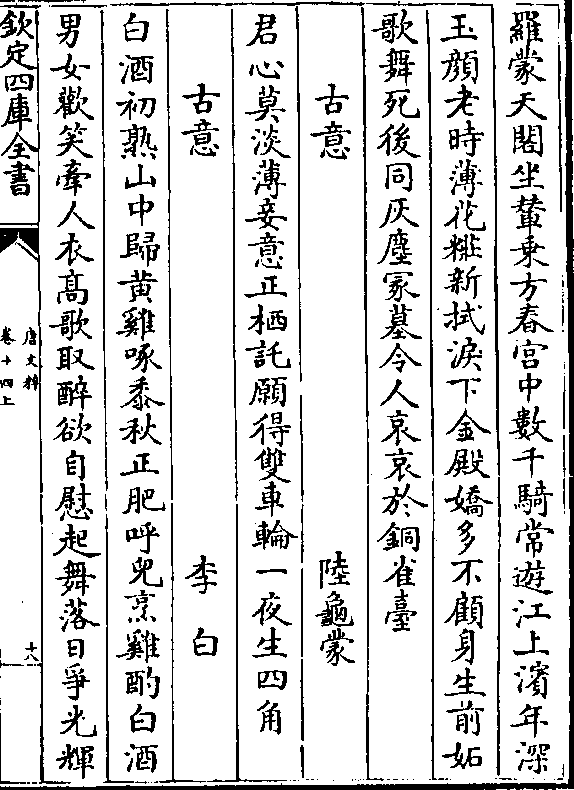 羅蒙天閣坐輦乗方春宫中數千騎常遊江上濱年深
玉顔老時薄花粧新拭淚下金殿嬌多不顧身生前妬
歌舞死後同灰塵冢墓令人哀哀於銅雀臺
古意 陸龜蒙
君心莫淡薄妾意正栖託願得雙車輪一夜生四角
古意 李白
白酒初熟山中歸黄雞啄黍秋正肥呼兒烹雞酌白酒
男女歡笑牽人衣髙歌取醉欲自慰起舞落日爭光輝
欽定四庫全書
唐文粹
卷十四上
十八